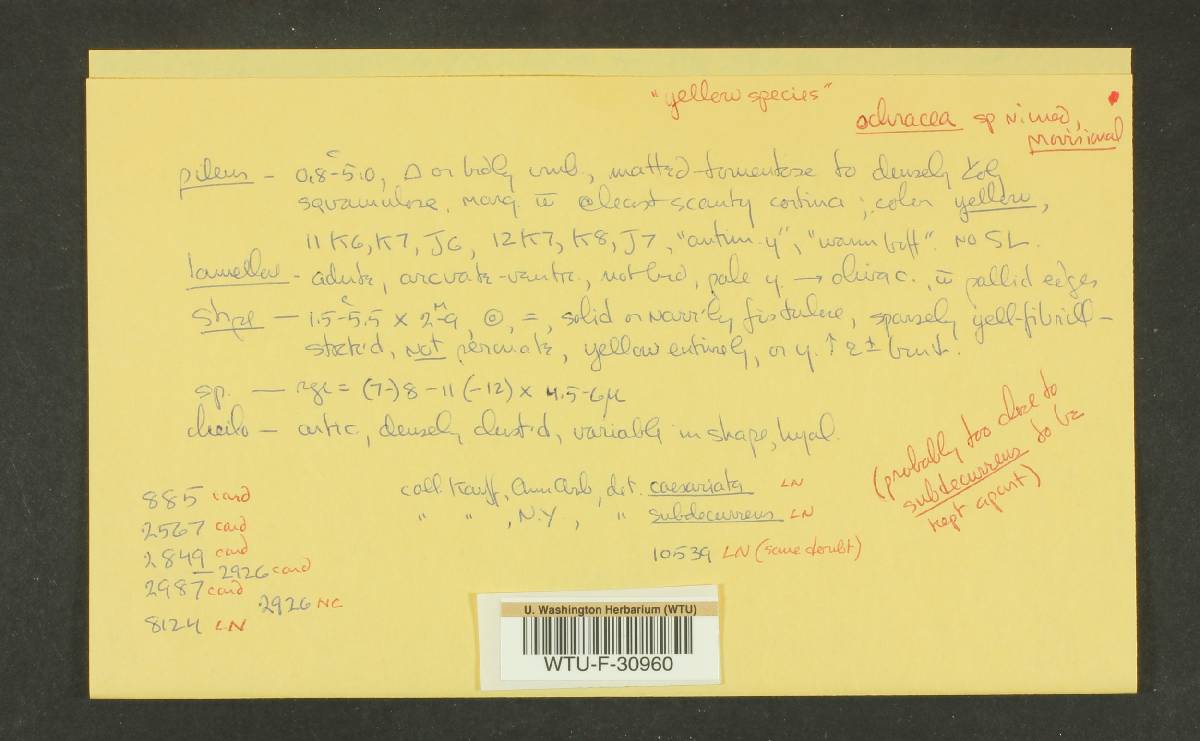 "yellow species"
ochracea sp nimed,
provisional
pileus – 0.8–5.0, Δ or br'dly umb., matted-tomentose to densely
squamulose, marg. w̄ @least scanty cortina; color yellow,
11K6, K7, J6, 12K7, K8, J7, "antim. y", "warm buff". NO SL.
lamellae – adnate, arcuate-ventric., not brd, pale y. → olivac., w̄ pallid edges
stipe – 1.5–5.5 × 2–9, ⊙, =, solid or narr'ly fistulose, sparsely yell-fibrill–
streak'd, not peronate, yellow entirely, or y. ↑ & ± brn ↓.
sp. – = (7-) 8–11 (-12) × 4.5–6μ
cheilo – antic., densely clust'd, variable in shape, hyal.
(probably too close to
subdecurrens to be
kept apart)
885 card
coll. Kauff, Ann Arb, det. caesariata LN
" " , N.Y., " subdecurrens LN
2567 card
2849 card
– 2926 card
10539 LN (some doubt)
2987 card
2926 NC
8124 LN
U. Washington Herbarium (WTU)
WTU-F-30960